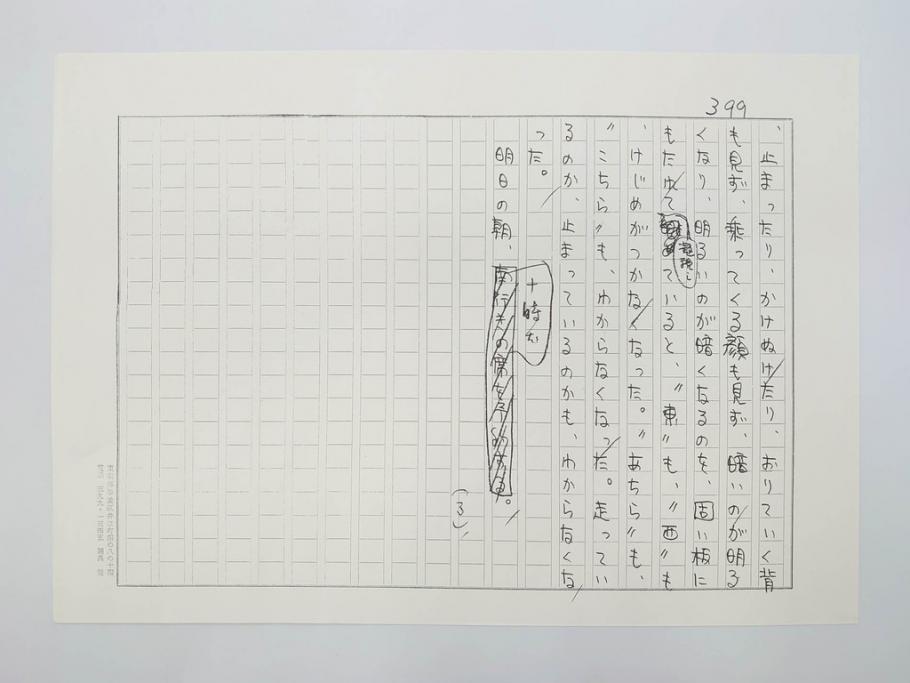 399
、止まったり、かけぬけたり、おりていく背
も見ず、乗ってくる顔も見ず、暗いのが明る
くなり、明るいのが暗くなるのを、固い板に
もたれて凝視していると、〝東〟も、〝西〟も
、けじめがつかなくなった。〝あちら〟も、
〝こちら〟も、わからなくなった。走ってい
るのか、止まっているのかも、わからなくな
った。
明日の朝、十時だ。
(3)